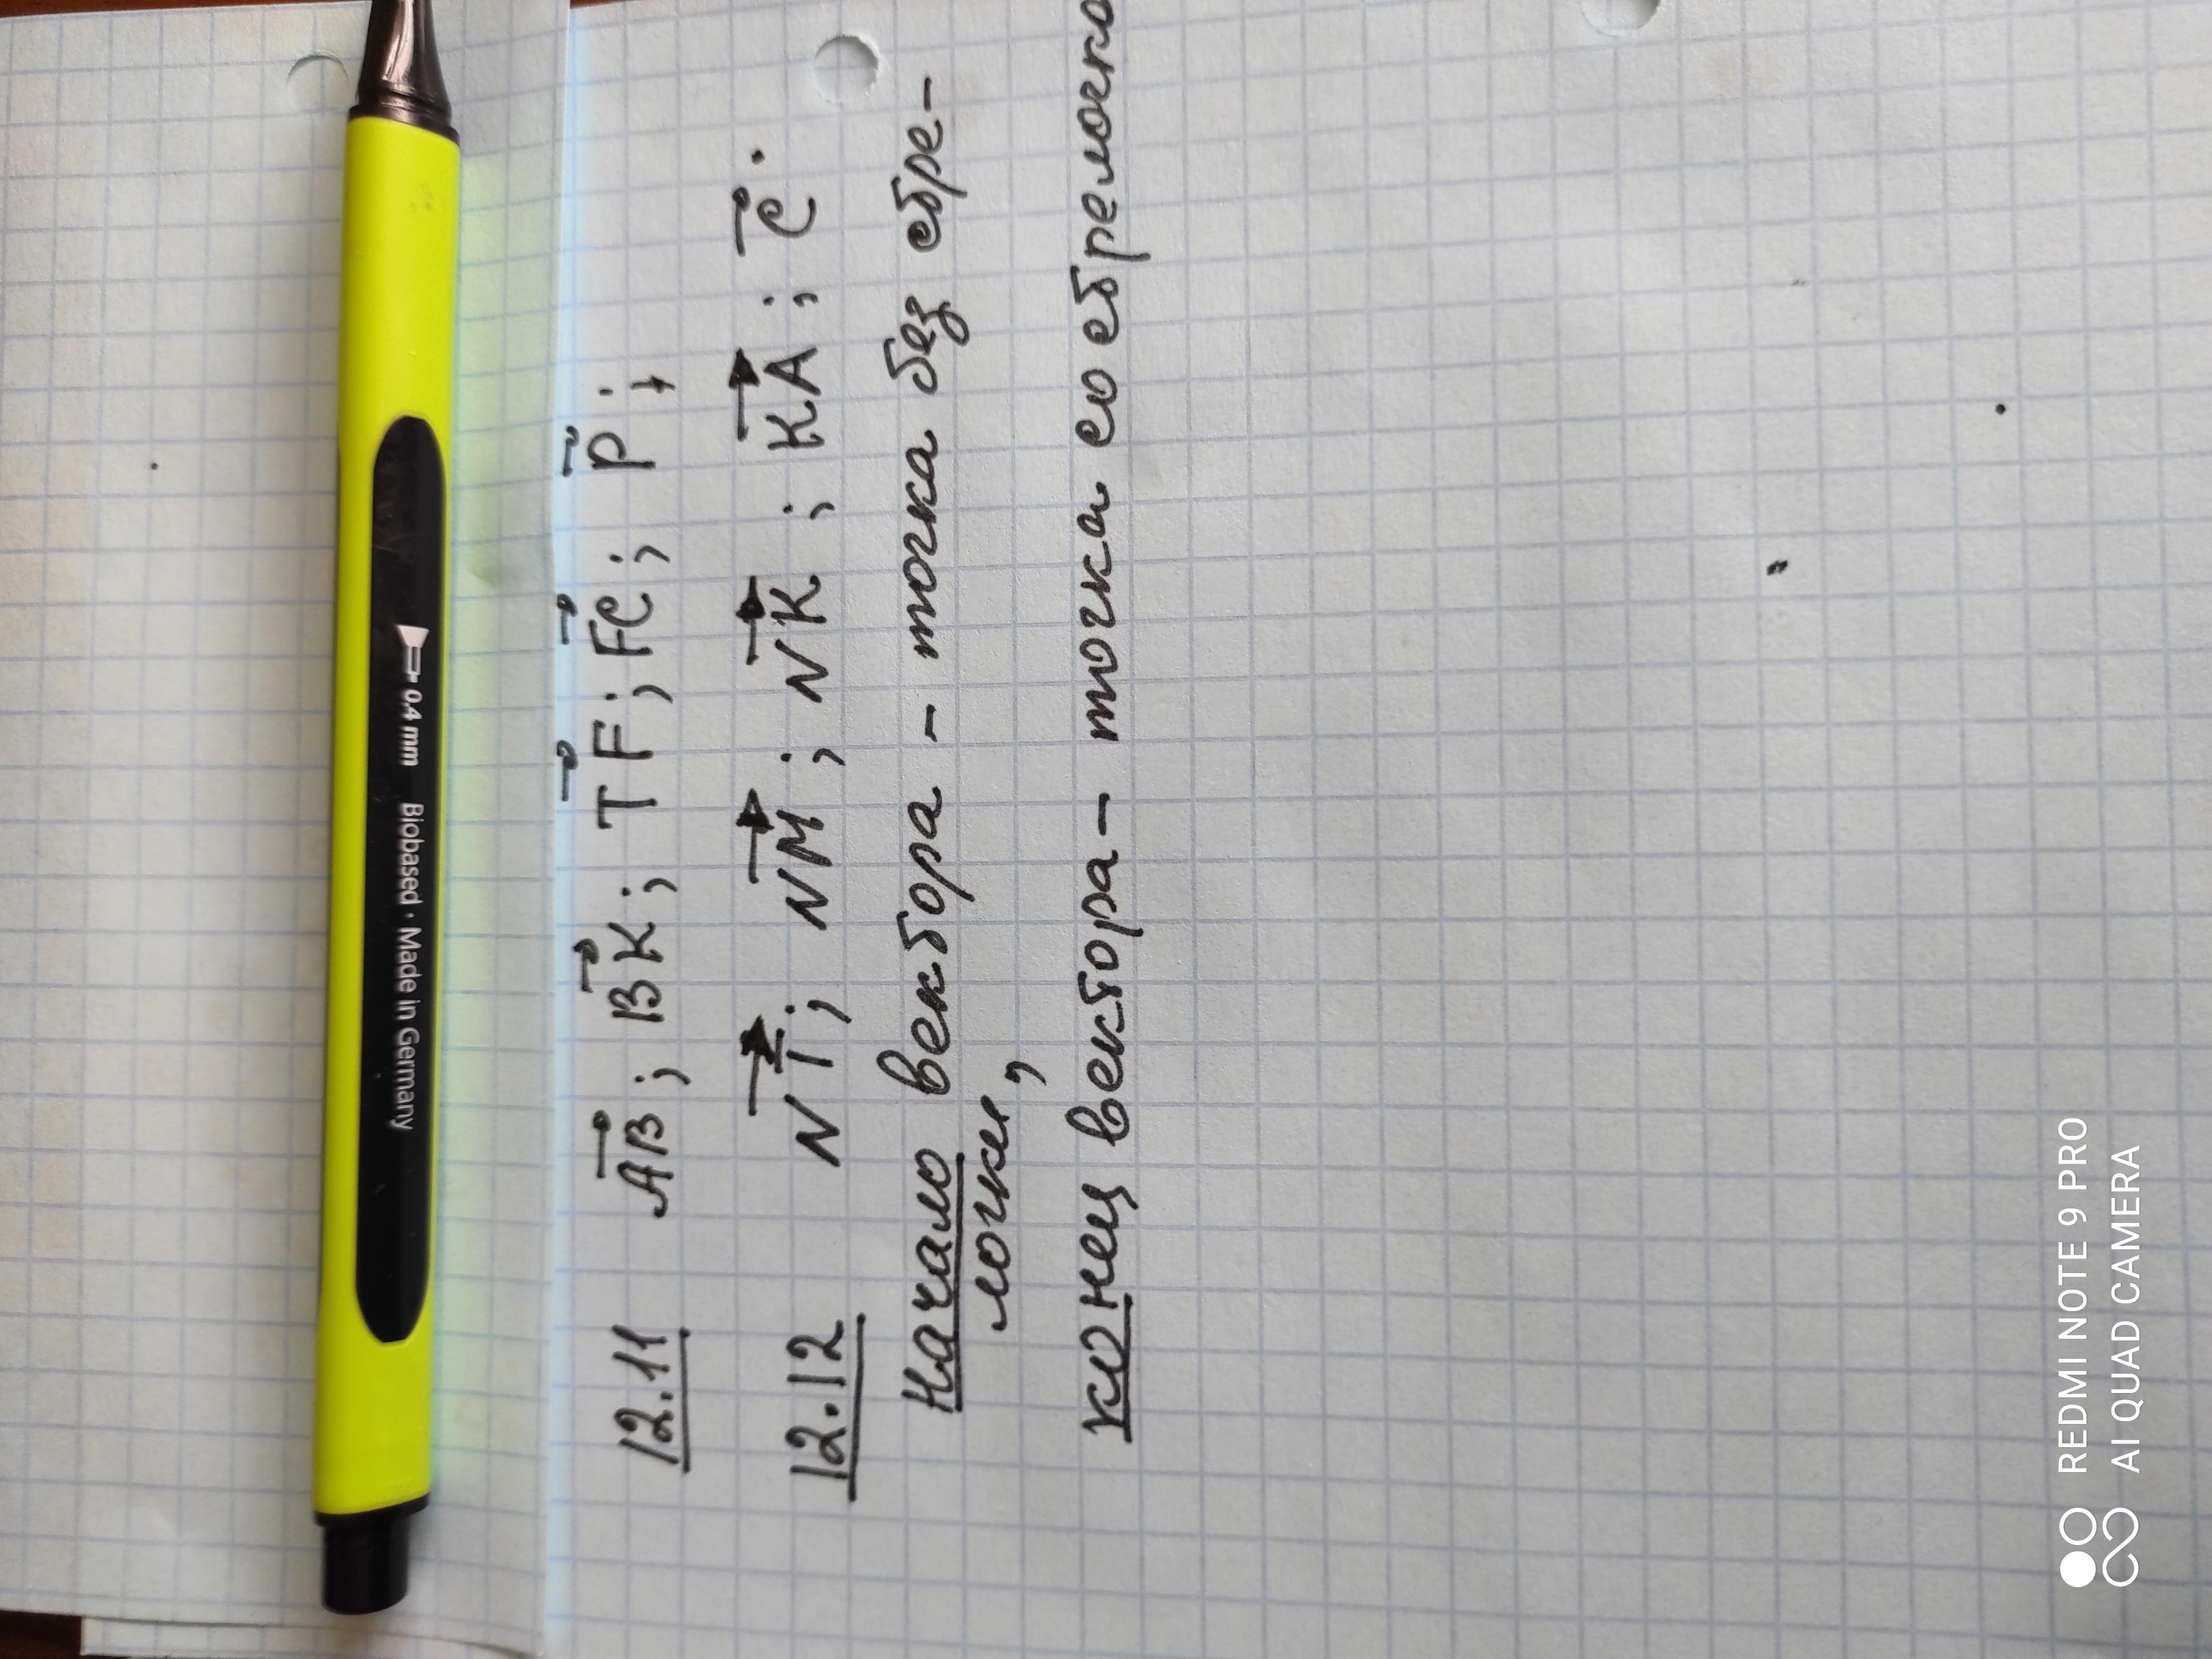 0.4 mm Biobased · Made in Germany
12.11 A⃗B⃗; B⃗K⃗; T⃗F⃗; F⃗C⃗; P⃗;
12.12 N⃗T⃗; N⃗M⃗; N⃗K⃗; K⃗A⃗; C⃗.
Начало вектора - точка без стре-
лочки,
конец вектора - точка со стрелочко
REDMI NOTE 9 PRO
AI QUAD CAMERA